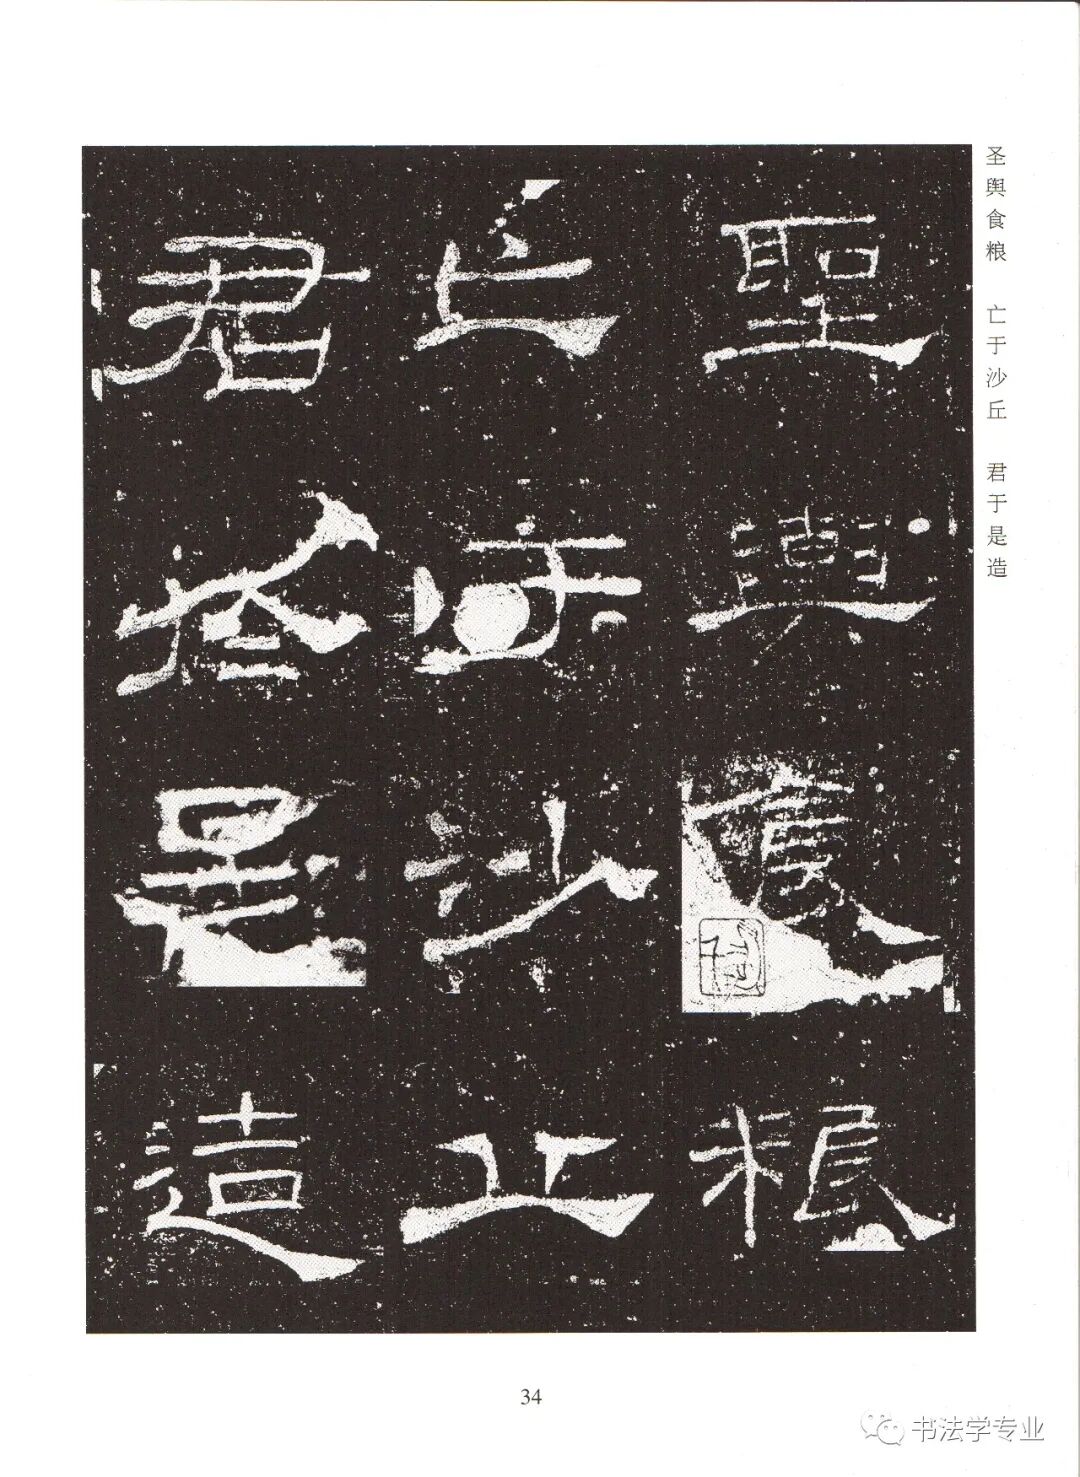 聖輿食粮
亡于沙丘
君於是造
圣舆食粮 亡于沙丘 君于是造
34
书法学专业